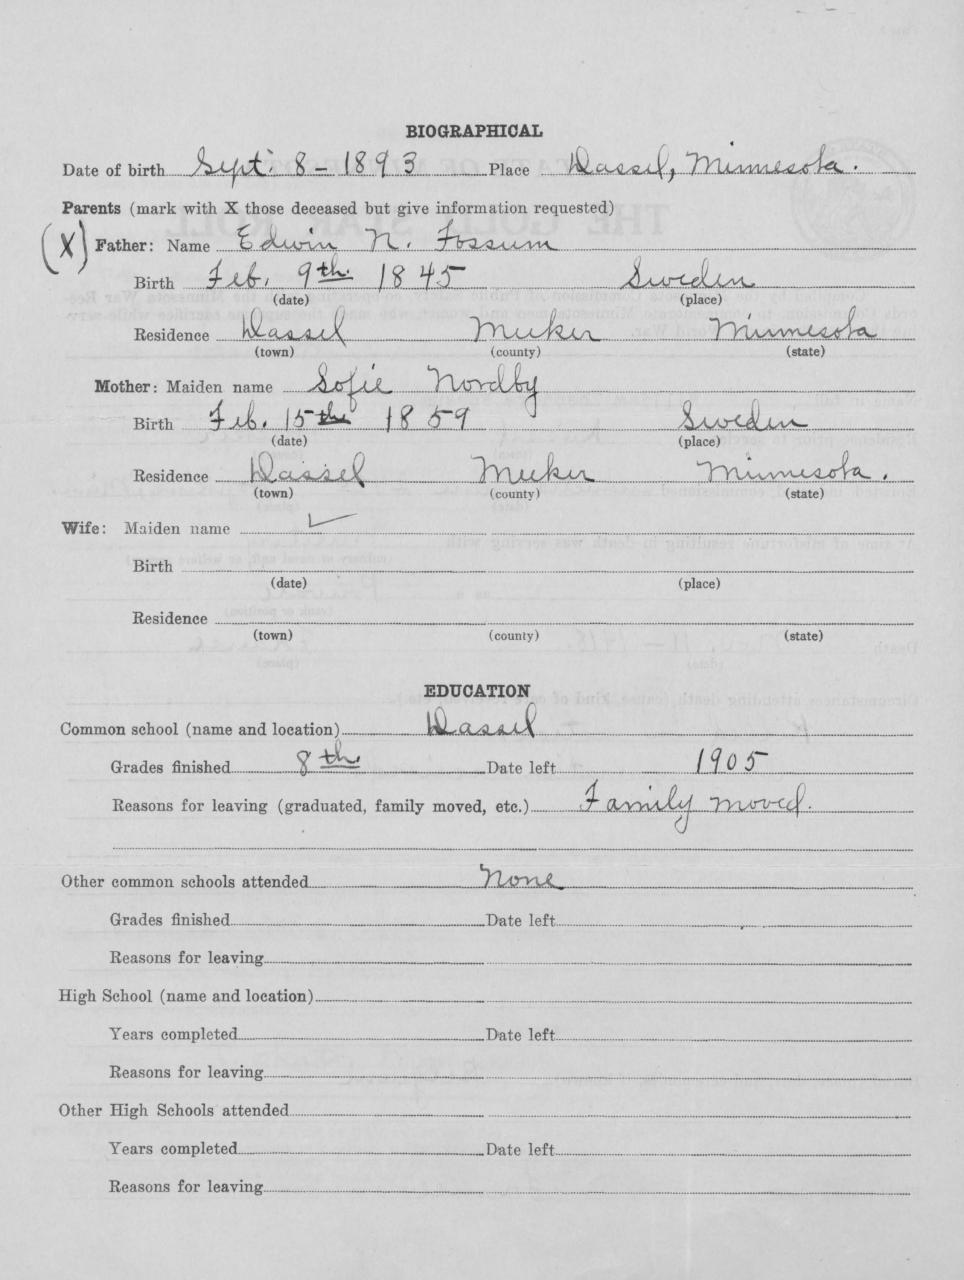 BIOGRAPHICAL
Date of birth Sept. 8 - 1893 Place Dassel, Minnesota.
Parents (mark with X those deceased but give information requested)
(X) Father: Name Edwin N. Fossum
Birth Feb. 9th. 1845 Sweden
(date) (place)
Residence Dassel Meeker Minnesota
(town) (county) (state)
Mother: Maiden name Sofie Nordby
Birth Feb. 15th 1859 Sweden
(date) (place)
Residence Dassel Meeker Minnesota.
(town) (county) (state)
Wife: Maiden name ✓
Birth
(date) (place)
Residence
(town) (county) (state)
EDUCATION
Common school (name and location) Dassel
Grades finished 8th. Date left 1905
Reasons for leaving (graduated, family moved, etc.) Family moved.
Other common schools attended None
Grades finished Date left
Reasons for leaving
High School (name and location)
Years completed Date left
Reasons for leaving
Other High Schools attended
Years completed Date left
Reasons for leaving